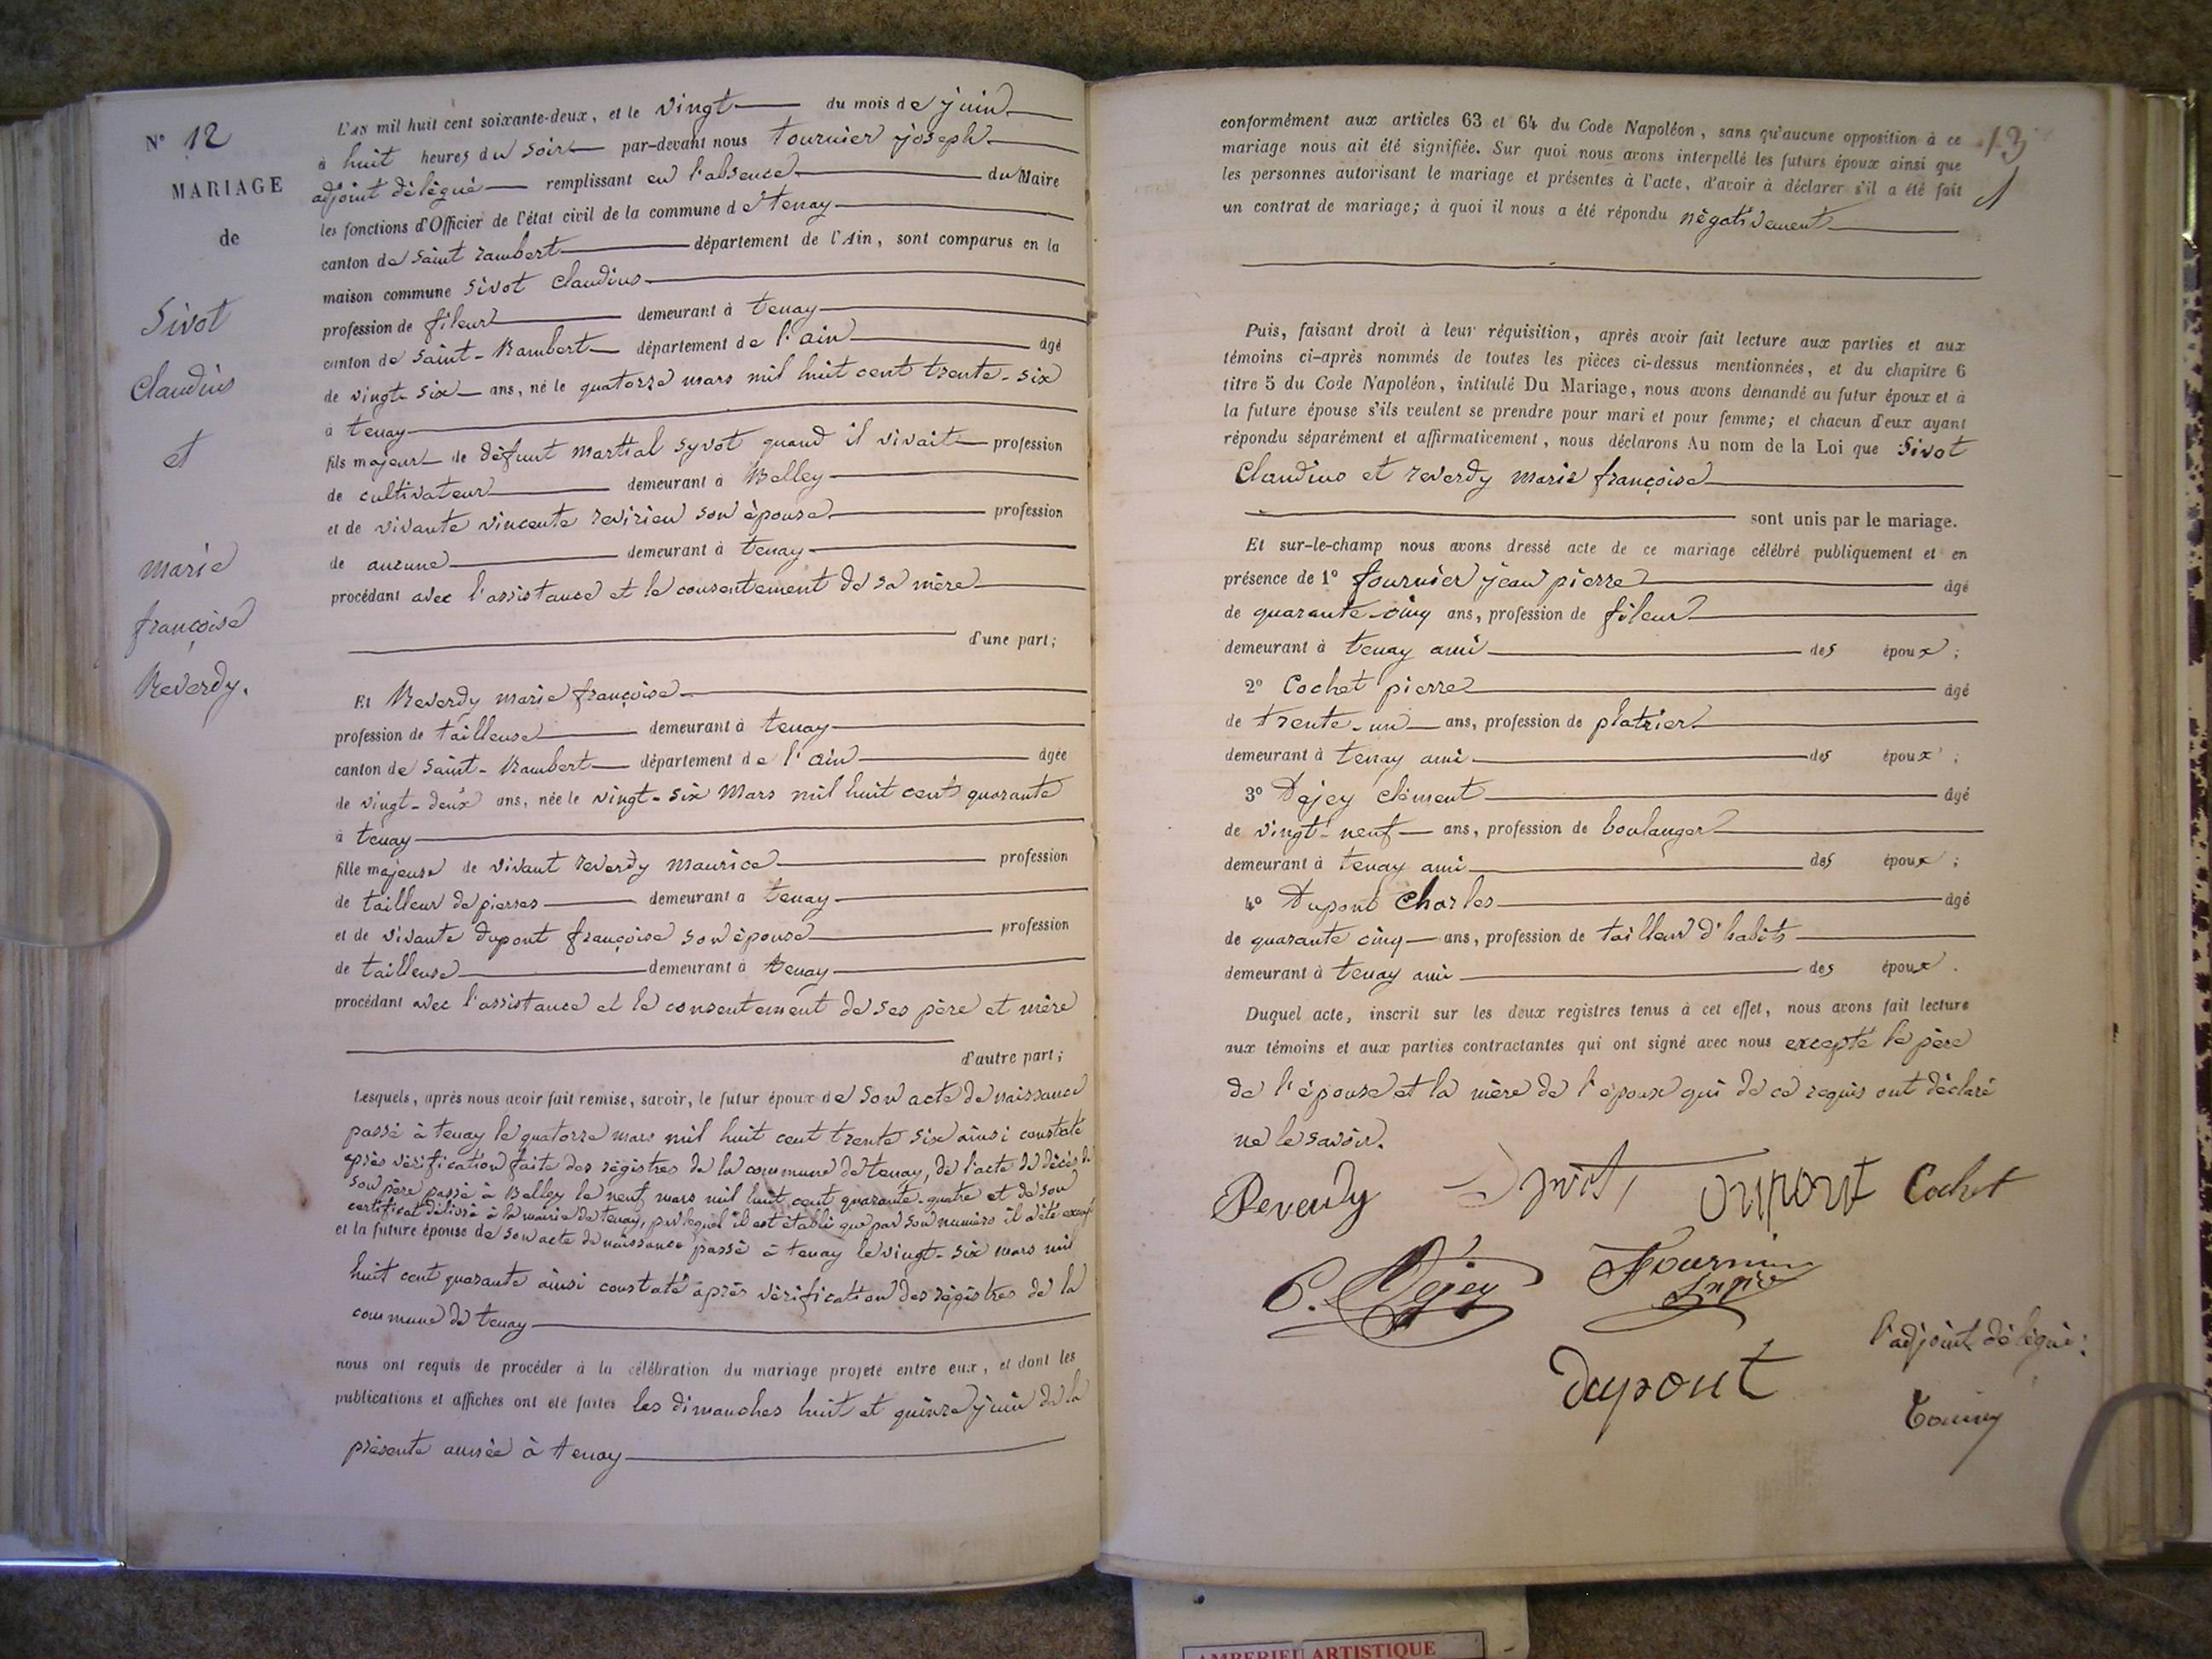 N° 12
MARIAGE
de
Sivot
Claudius
et
marie
françoise
Reverdy.
L'AN mil huit cent soixante-deux, et le vingt du mois de juin
à huit heures du soir par-devant nous tournier joseph
adjoint délégué remplissant en l'absence du Maire
les fonctions d'Officier de l'état civil de la commune de tenay
canton de saint rambert département de l'Ain, sont comparus en la
maison commune Sivot Claudius
profession de fileur demeurant à tenay
canton de saint-Rambert département de l'ain âgé
de vingt-six ans, né le quatorze mars mil huit cent trente-six
à tenay
fils majeur de défunt martial syvot quand il vivait profession
de cultivateur demeurant à Belley
et de vivante vincente revirieu son épouse profession
de aucune demeurant à tenay
procédant avec l'assistance et le consentement de sa mère
d'une part;
Et Reverdy marie françoise
profession de tailleuse demeurant à tenay
canton de saint-Rambert département de l'ain âgée
de vingt-deux ans, née le vingt-six Mars mil huit cent quarante
à tenay
fille majeure de vivant reverdy maurice profession
de tailleur de pierres demeurant a tenay
et de vivante dupont françoise son épouse profession
de tailleuse demeurant à tenay
procédant avec l'assistance et le consentement de ses père et mère
d'autre part;
Lesquels, après nous avoir fait remise, savoir, le futur époux de son acte de naissance
passé à tenay le quatorze mars mil huit cent trente six ainsi constaté
après vérification faite des régistres de la commune de tenay, de l'acte de décès de
son père passé à Belley le neuf mars mil huit cent quarante-quatre et de son
certificat délivré à la mairie de tenay, par lequel il est établi que par son numéro il a été exempt
et la future épouse de son acte de naissance passé à tenay le vingt-six mars mil
huit cent quarante ainsi constaté après vérification des régistres de la
commune de tenay
nous ont requis de procéder à la célébration du mariage projeté entre eux, et dont les
publications et affiches ont été faites les dimanches huit et quinze juin de la
présente année à tenay
13
conformément aux articles 63 et 64 du Code Napoléon, sans qu'aucune opposition à ce
mariage nous ait été signifiée. Sur quoi nous avons interpellé les futurs époux ainsi que
les personnes autorisant le mariage et présentes à l'acte, d'avoir à déclarer s'il a été fait
un contrat de mariage; à quoi il nous a été répondu négativement
Puis, faisant droit à leur réquisition, après avoir fait lecture aux parties et aux
témoins ci-après nommés de toutes les pièces ci-dessus mentionnées, et du chapitre 6
titre 5 du Code Napoléon, intitulé Du Mariage, nous avons demandé au futur époux et à
la future épouse s'ils veulent se prendre pour mari et pour femme; et chacun d'eux ayant
répondu séparément et affirmativement, nous déclarons Au nom de la Loi que Sivot
Claudius et reverdy marie françoise
sont unis par le mariage.
Et sur-le-champ nous avons dressé acte de ce mariage célébré publiquement et en
présence de 1° fournier jean pierre âgé
de quarante-cinq ans, profession de fileur
demeurant à tenay ami des époux;
2° Cochet pierre âgé
de trente-un ans, profession de platrier
demeurant à tenay ami des époux;
3° Dejey clément âgé
de vingt-neuf ans, profession de boulanger
demeurant à tenay ami des époux;
4° Dupont Charles âgé
de quarante cinq ans, profession de tailleur d'habits
demeurant à tenay ami des époux.
Duquel acte, inscrit sur les deux registres tenus à cet effet, nous avons fait lecture
aux témoins et aux parties contractantes qui ont signé avec nous excepté le père
de l'épouse et la mère de l'époux qui de ce requis ont déclaré
ne le savoir.
Reverdy Dupont Cochet
C. Dejey Fournier
Dupont
l'adjoint délégué:
AMBERIEU ARTISTIQUE